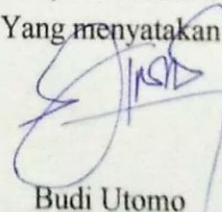 Yang menyatakan
Budi Utomo